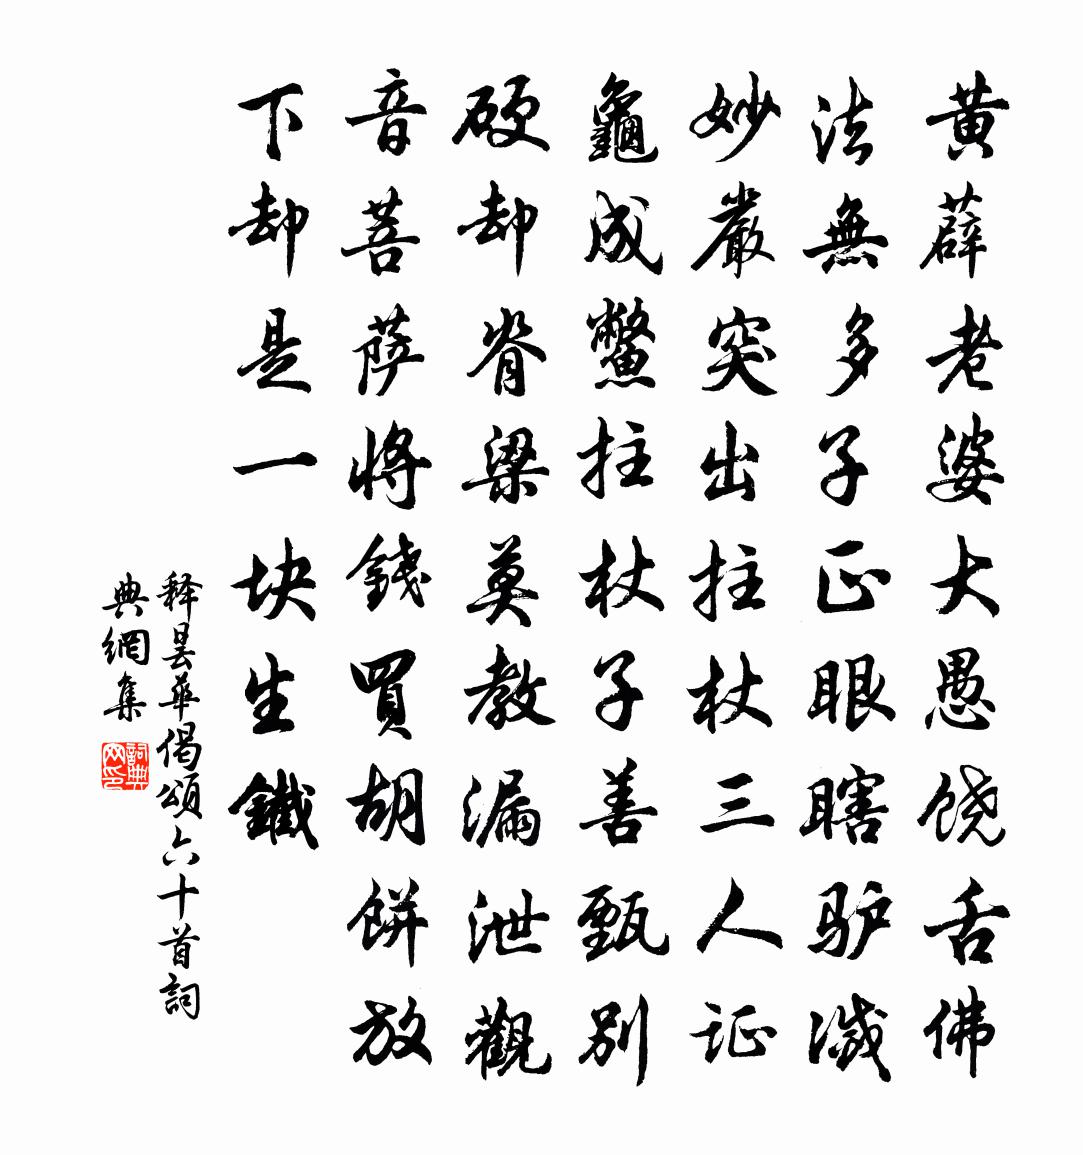 黄薜老婆大愚饶舌佛
法無多子正眼瞎驴滅
妙嚴突出拄杖三人证
龜成鱉拄杖子善甄别
硬却脊梁莫教漏泄觀
音菩萨將錢買胡餅放
下却是一块生鐵
释曇華偈頌六十首詞
典網集
詞典
网印